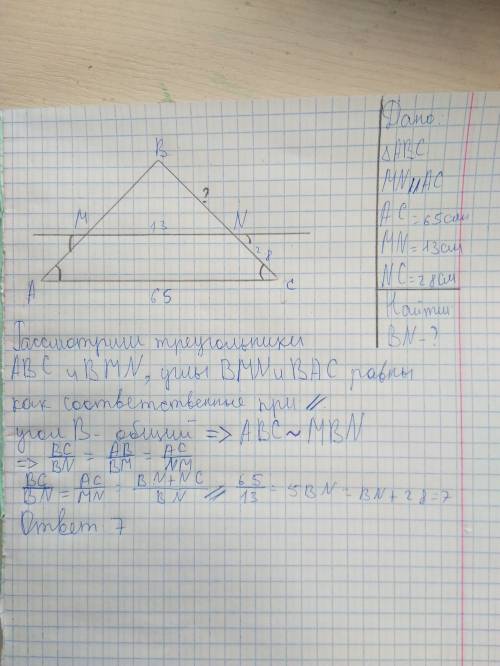 B
?
M
13
N
28
A
65
C
Дано:
△ABC
MN//AC
AC=65см
MN=13см
NC=28см
Найти
BN-?
Рассмотрим треугольники
ABC и BMN, углы BMN и BAC равны
как соответственные при //
угол B - общий => ABC ~ MBN
=> BC/BN = AB/BM = AC/NM
BC/BN = AC/MN = BN+NC/BN // 65/13 = 5BN = BN+28=7
Ответ 7